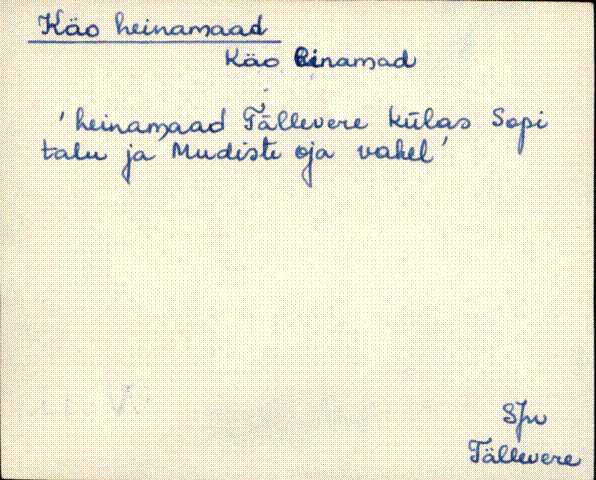 Käo heinamaad
Käo einamad
'heinamaad Tällevere külas Sopi
talu ja Mudiste oja vahel'
SJn
Tällevere